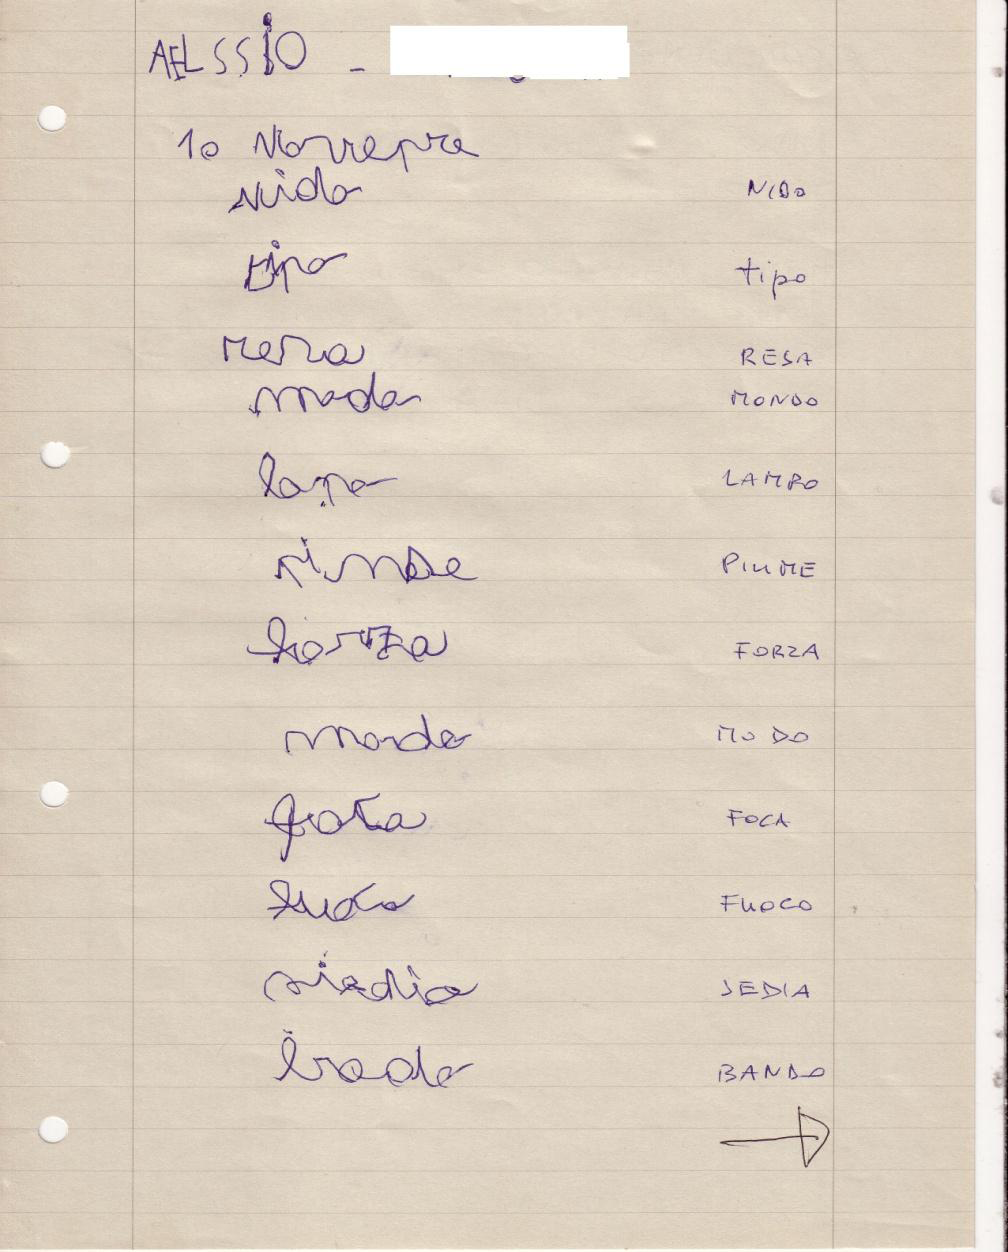 AELSSIO -
10 Novrepre
Nido NIDO
tipo tipo
rera RESA
modo MONDO
lapo LAMPO
FORZA
mordo MODO
foca FOCA
fuoco FUOCO
siedia SEDIA
bado BANDO